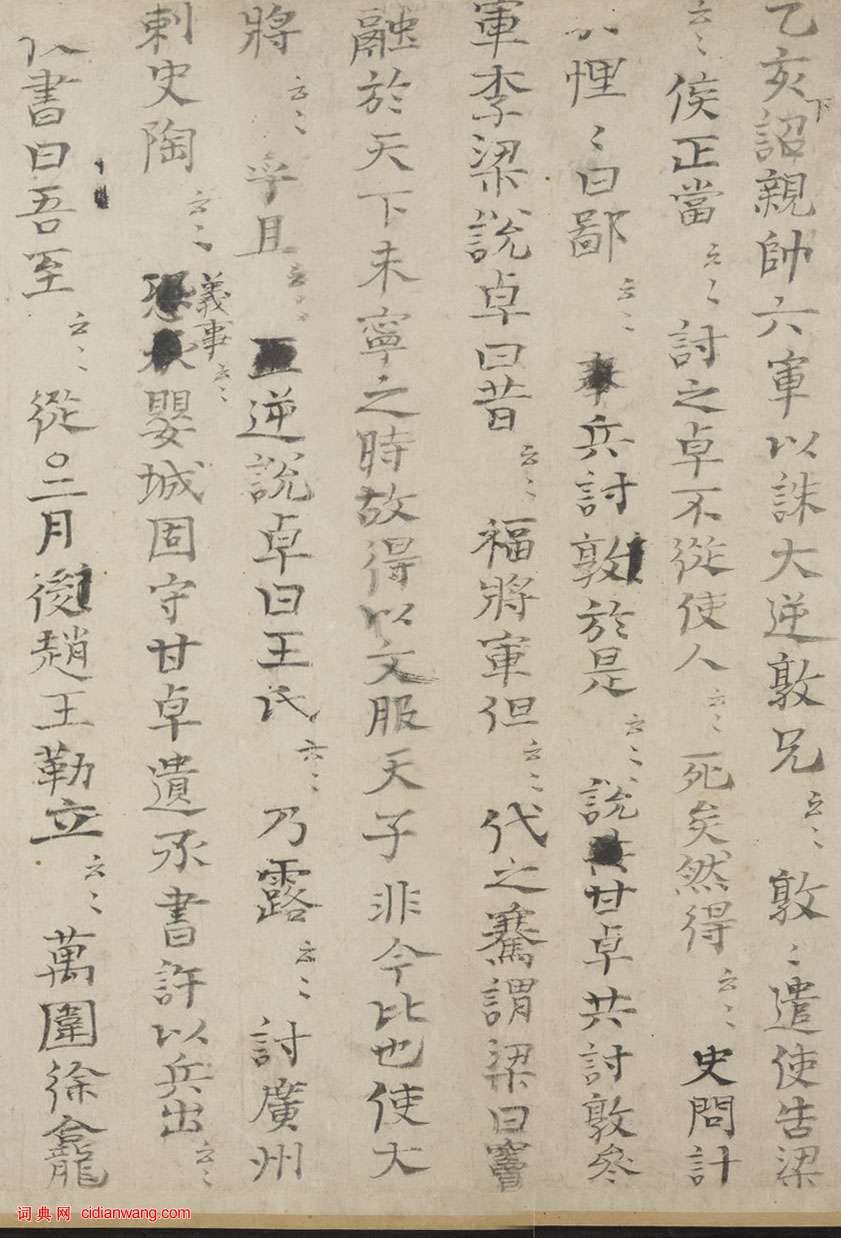 乙亥下詔親帥六軍以誅大逆敦兄云〻敦〻遣使告梁
云〻侯正當云〻討之卓不從使人云〻死矣然得云〻史問計
悝〻曰鄙云〻兵討敦於是云〻說甘卓共討敦參
軍李梁說卓曰昔云〻福將軍但云〻代之騫謂梁曰竇
融於天下未寧之時故得以文服天子非今比也使大
將云〻乎且云〻逆說卓曰王氏云〻乃露云〻討廣州
刺史陶云〻義事云〻嬰城固守甘卓遺承書許以兵出云〻
書曰吾至云〻從〇二月後趙王勒立云〻萬圍徐龕
词典网 cidianwang.com